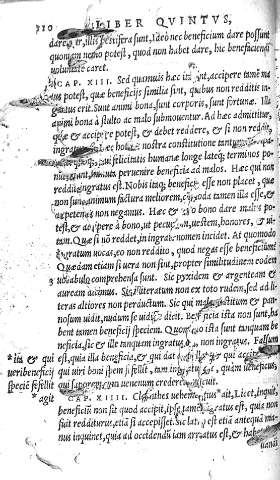 710 LIBER QVINTVS,
dare, illis pestifera sunt, ideo nec beneficium dare possunt
quoniam nemo potest, quod non habet dare, hic beneficendi
voluntate caret.
CAP. XIII. Sed quamuis hæc ita sint, accipere tamē ma
lus potest, quæ beneficijs similia sint, quibus non redditis in
gratus erit. Sunt animi bona, sunt corporis, sunt fortunæ. Illa
animi bona à stulto ac malo submouentur. Ad hæc admittitur,
quæ & accipere potest, & debet reddere, & si non reddit,
ingratus. hæc nostra constitutione
felicitatis humanæ longe lateq; terminos po
peruenire beneficia ad malos. Hæc qui non
reddit ingratus est. Nobis itaq; beneficia esse non placet, quæ
non sunt animum factura meliorem, cōmoda tamen illa esse, &
expetenda non negamus. Hæc & viro bono dare malus po
test, & accipere à bono, ut pecuniam, uestem, honores, & ui-
tam. Quæ si nō reddet, in ingrati nomen incidet. At quomodo
ingratum uocas, eo non reddito, quod negas esse beneficium?
Quædam etiam si uera non sint, propter similitudinem eodem
uocabulo comprehensa sunt. Sic pyxidem & argenteam &
auream dicimus. Sic illiteratum non ex toto rudem, sed ad li-
teras altiores non perductum. Sic qui male uestitum & pan-
nosum uidit, nudum se uidisse dicit. Beneficia ista non sunt, ha
bent tamen beneficij speciem. Quomodo ista sunt tanquam be
neficia, sic & ille tanquam ingratus est, non ingratus. Falsum
*ita & qui est, quia illa beneficia, & qui dat appellat & qui accipit
ueri beneficij qui uiri boni speciem fefellit, tam ingratus est, quam ueneficus,
speciē fefellit qui soporem cum uenenum crederet, miscuit.
*agit CAP. XIIII. Cleanthes uehementius *ait, Licet, inquit,
beneficiū non sit quod accipit, ipse tamen ingratus est, quia non
fuit redditurus, etiā si accepisset. Sic latro est etiā antequā ma-
nus inquinet, quia ad occidendū iam armatus est, & habet